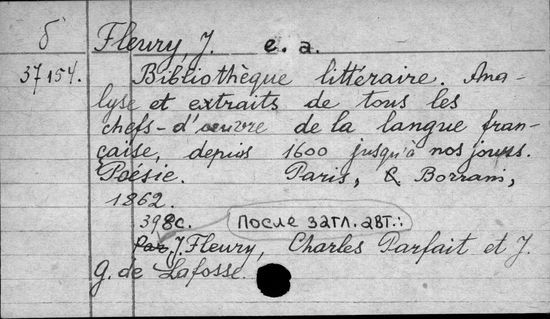 б Fleury, J. e. a.
37154. Bibliothèque littéraire. Ana-
lyse et extraits de tous les
chefs-d'œuvre de la langue fran-
çaise, depuis 1600 jusqu'à nos jours.
Poésie. Paris, Borrani,
1862.
398с. после загл. авт.:
Par J. Fleury, Charles Parfait et J.
G. de Lafosse.